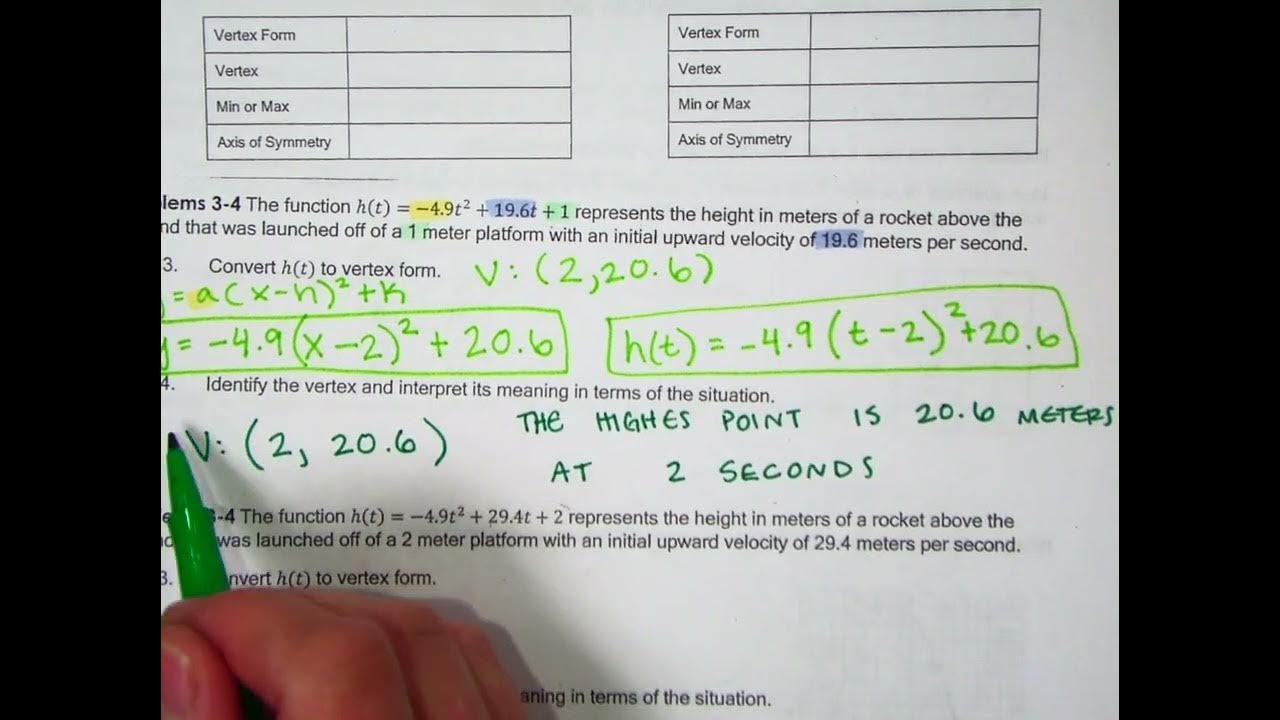 Vertex Form
Vertex
Min or Max
Axis of Symmetry
Vertex Form
Vertex
Min or Max
Axis of Symmetry
lems 3-4 The function h(t) = −4.9t² + 19.6t + 1 represents the height in meters of a rocket above the
nd that was launched off of a 1 meter platform with an initial upward velocity of 19.6 meters per second.
3. Convert h(t) to vertex form. V: (2,20.6)
= a(x-h)² + k
y = -4.9(x-2)² + 20.6
h(t) = -4.9(t-2)² +20.6
4. Identify the vertex and interpret its meaning in terms of the situation.
V: (2, 20.6)
THE HIGHES POINT IS 20.6 METERS
AT 2 SECONDS
3-4 The function h(t) = −4.9t² + 29.4t + 2 represents the height in meters of a rocket above the
was launched off of a 2 meter platform with an initial upward velocity of 29.4 meters per second.
3. nvert h(t) to vertex form.
aning in terms of the situation.